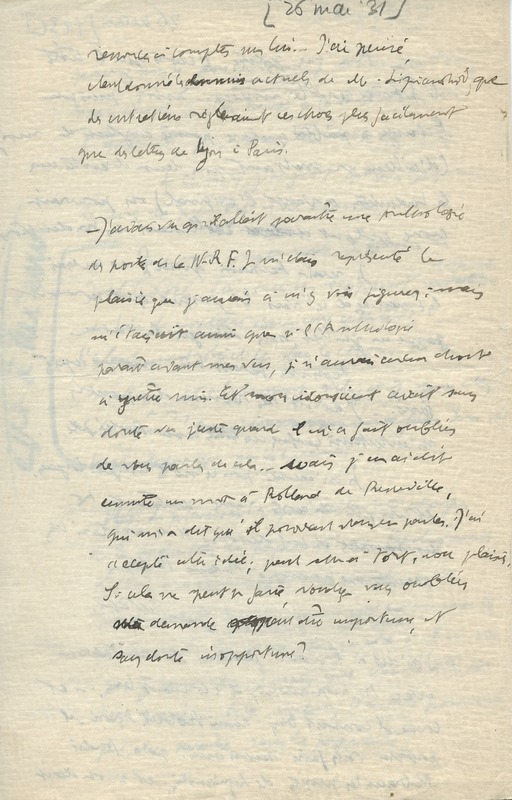 [26 mai 31]
à compter sur lui... J'ai pensé,
étant donné les actuels de M. que
des entretiens règleraient ces choses plus facilement
que des lettres de Lyon à Paris.
— J'avais su qu'il allait paraître une Anthologie
des poètes de la N.R.F. Je m'étais représenté le
plaisir que j'aurais à m'y voir figurer : mais
aussi que si l'Anthologie
paraît avant mes vers, je n'aurais aucun droit
à y être mis. Et mon avait sans
doute vu juste quand il m'a fait oublier
de vous parler de cela... mais j'en ai dit
ensuite un mot à Rolland de Renéville,
qui m'a dit qu'il pouvait vous en parler. J'ai
accepté cette idée, peut-être à tort, avec plaisir.
Si cela ne peut se faire, veuillez oublier
demande importune, et
sans doute inopportune ?